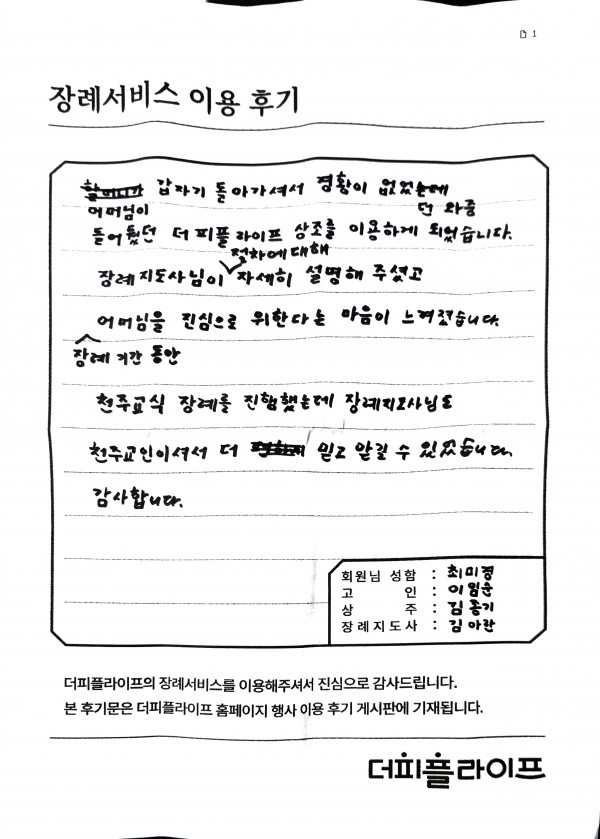 1
장례서비스 이용 후기
할머니가 갑자기 돌아가셔서 경황이 없었는데
어머님이 던 와중
들어뒀던 더피플라이프 상조를 이용하게 되었습니다.
절차에 대해
장례지도사님이 자세히 설명해 주셨고
어머님을 진심으로 위한다는 마음이 느껴졌습니다.
장례 기간 동안
천주교식 장례를 진행했는데 장례지도사님도
천주교인이셔서 더 믿고 맡길 수 있었습니다.
감사합니다.
회원님 성함 : 최미경
고 인 : 이임순
상 주 : 김종기
장례지도사 : 김아란
더피플라이프의 장례서비스를 이용해주셔서 진심으로 감사드립니다.
본 후기문은 더피플라이프 홈페이지 행사 이용 후기 게시판에 기재됩니다.
더피플라이프